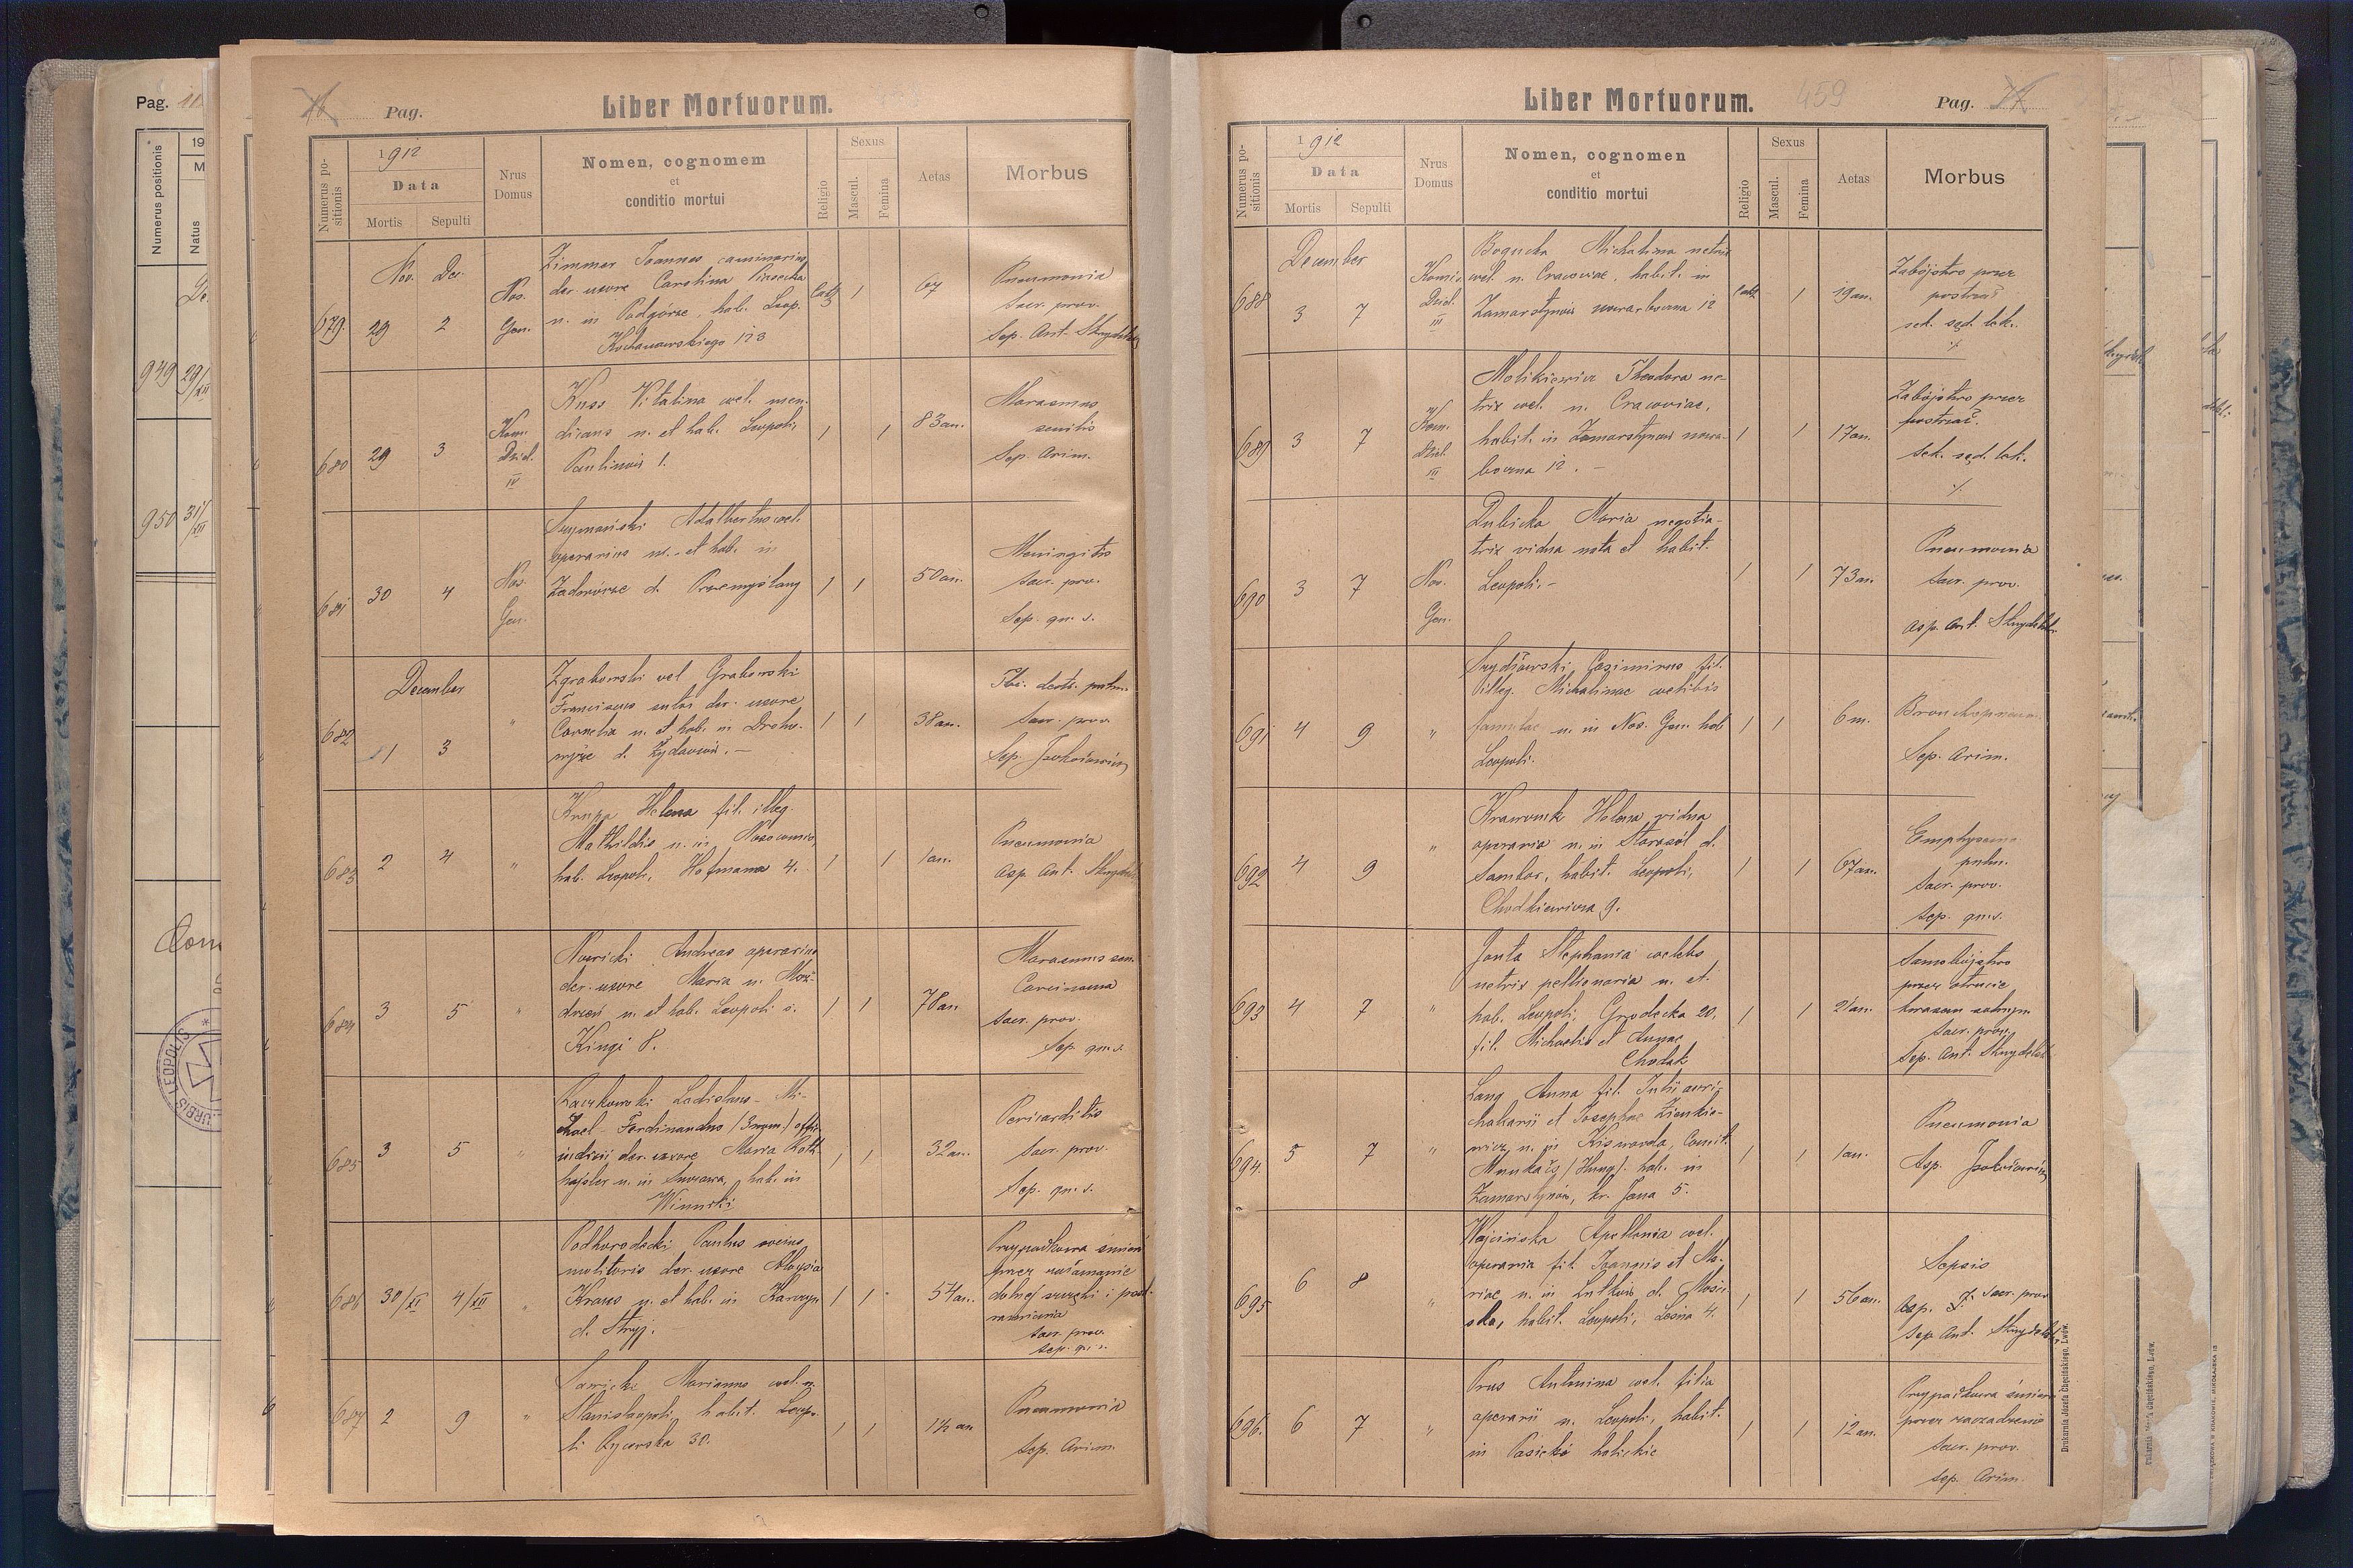 Pag.
Numerus positionis
19
M
Natus
949 29/XII
950 31/XII
Pag.
Liber Mortuorum.
Numerus positionis
1912
Data
Mortis
Sepulti
Nrus Domus
Nomen, cognomem
et
conditio mortui
Religio
Sexus
Mascul.
Femina
Aetas
Morbus
Nov. Dec.
679. 29 2
Nos.
Gen.
Zimmer Joannes caminarius
der. uxore Carolina
n. in Podgórze, hab. Leop.
Kochanowskiego 123
Cath 1 67
Pneumonia
Sacr. prov.
Sep. Ant. Skrydelski
680 29 3
Kom.
Dziel.
IV
Kuss Vitalina cael. men-
dicans n. et hab. Leopoli,
Paulinów 1.
1 1 83 an.
Marasmus
senilis
Sep. Arim.
681 30 4
Nos.
Gen.
Szymański Adalbertus cael.
operarius n. et hab. in
Zadwórze d. Przemyślany
1 1 50 an.
Meningitis
Sacr. prov.
Sep. qu. s.
December
682 1 3 "
Zgrabowski vel Grabowski
Franciscus sutor der. uxore
Cornelia n. et hab. in Droho-
wyże d. Żydaczów. —
1 1 38 an.
Tbc. dextr. pulm.
Sacr. prov.
683 2 4 "
Krupa Helena fil. illeg.
Mathildis n. in Nosocomio,
hab. Leopoli, Hofmana 4.
1 1 1 an.
Pneumonia
Asp. Ant. Skrydelski
684 3 5 "
Nowicki Andreas operarius
der. uxore Maria n. Moż-
drzeń n. et hab. Leopoli s.
Kingi 8.
1 1 78 an.
Marasmus sen.
Carcinoma
Sacr. prov.
Sep. qu. s.
685 3 5 "
Raczkowski Ladislaus - Mi-
chael - Ferdinandus (3 nym.) offi-
der. uxore Maria Roth-
n. in Suczawa, hab. in
Winniki
1 1 32 an.
Pericarditis
Sacr. prov.
Sep. qu. s.
686 30/XI 4/XII "
Podhorodecki Paulus socius
molitoris der. uxore Aloysia
Kraus n. et hab. in
d. Stryj.
1 1 57 an.
Przypadkowa śmierć
przez złamanie
dolnej szczęki i
Sacr. prov.
Sep. qu. s.
687 2 9 "
Sawicki Marianus cael. n.
Stanislaopoli, habit. Leopo-
li Rycerska 30.
1 1 1½ an
Pneumonia
Sep. Arim.
Liber Mortuorum.
459
Pag.
Numerus positionis
1912
Data
Mortis
Sepulti
Nrus Domus
Nomen, cognomen
et
conditio mortui
Religio
Sexus
Mascul.
Femina
Aetas
Morbus
December
688 3 7
Komis.
Dziel.
III
Bogucka Michalina netrix
cael. n. Cracoviae, habit. in
Zamarstynów nowa boczna 12
Cath 1 19 an.
Zabójstwo przez
postrzał
sek. sąd. lek.
689 3 7
Kom.
Dziel.
III
Molikiewicz Theodora ne-
trix cael. n. Cracoviae,
habit. in Zamarstynów nowa
boczna 12. —
1 1 17 an.
Zabójstwo przez
postrzał.
Sek. sąd. lek.
690 3 7
Nos.
Gen.
Dubicka Maria negotia-
trix vidua nata et habit.
Leopoli. —
1 1 73 an.
Pneumonia
Sacr. prov.
Asp. Ant. Skrydelski
691 4 9 "
Szydłowski Casimirus fil.
illeg. Michalinae caelibis
famulae n. in Nos. Gen. hab
Leopoli.
1 1 6 m.
Bronchopneum.
Sep. Arim.
692 4 9 "
Krawczuk Helena vidua
operaria n. in Starasól d.
Sambor, habit. Leopoli,
Chodkiewicza 9.
1 1 67 an.
Emphysema
pulm.
Sacr. prov.
Sep. qu. s.
693 4 7 "
Janta Stephania caelebs
netrix pellionaria n. et
hab. Leopoli, Grodecka 20,
fil. Michaelis et Annae
Chodak
1 1 21 an.
Samobójstwo
przez otrucie
kwasem solnym
Sacr. prov.
Sep. Ant. Skrydelski
694. 5 7 "
Lang Anna fil. Julii auri-
et Josephae Zienkie-
wicz n. in Kisvarda, Comit.
Munkács (Hung). hab. in
Zamarstynów, kr. Jana 5.
1 1 1 an.
Pneumonia
695 6 8 "
Wojcińska Apollonia cael.
operaria fil. Joannis et Ma-
riae n. in Lutków d. Mości-
ska, habit. Leopoli, Leśna 4.
1 1 56 an.
Sepsis
Sacr. prov.
Sep. Ant. Skrydelski
696. 6 7 "
Prus Antonina cael. filia
operarii n. Leopoli, habit.
in Pasieki halickie
1 1 12 an.
Przypadkowa śmierć
przez zaczadzenie
Sacr. prov.
Sep. Arim.
Drukarnia Józefa Chęcińskiego, Lwów.